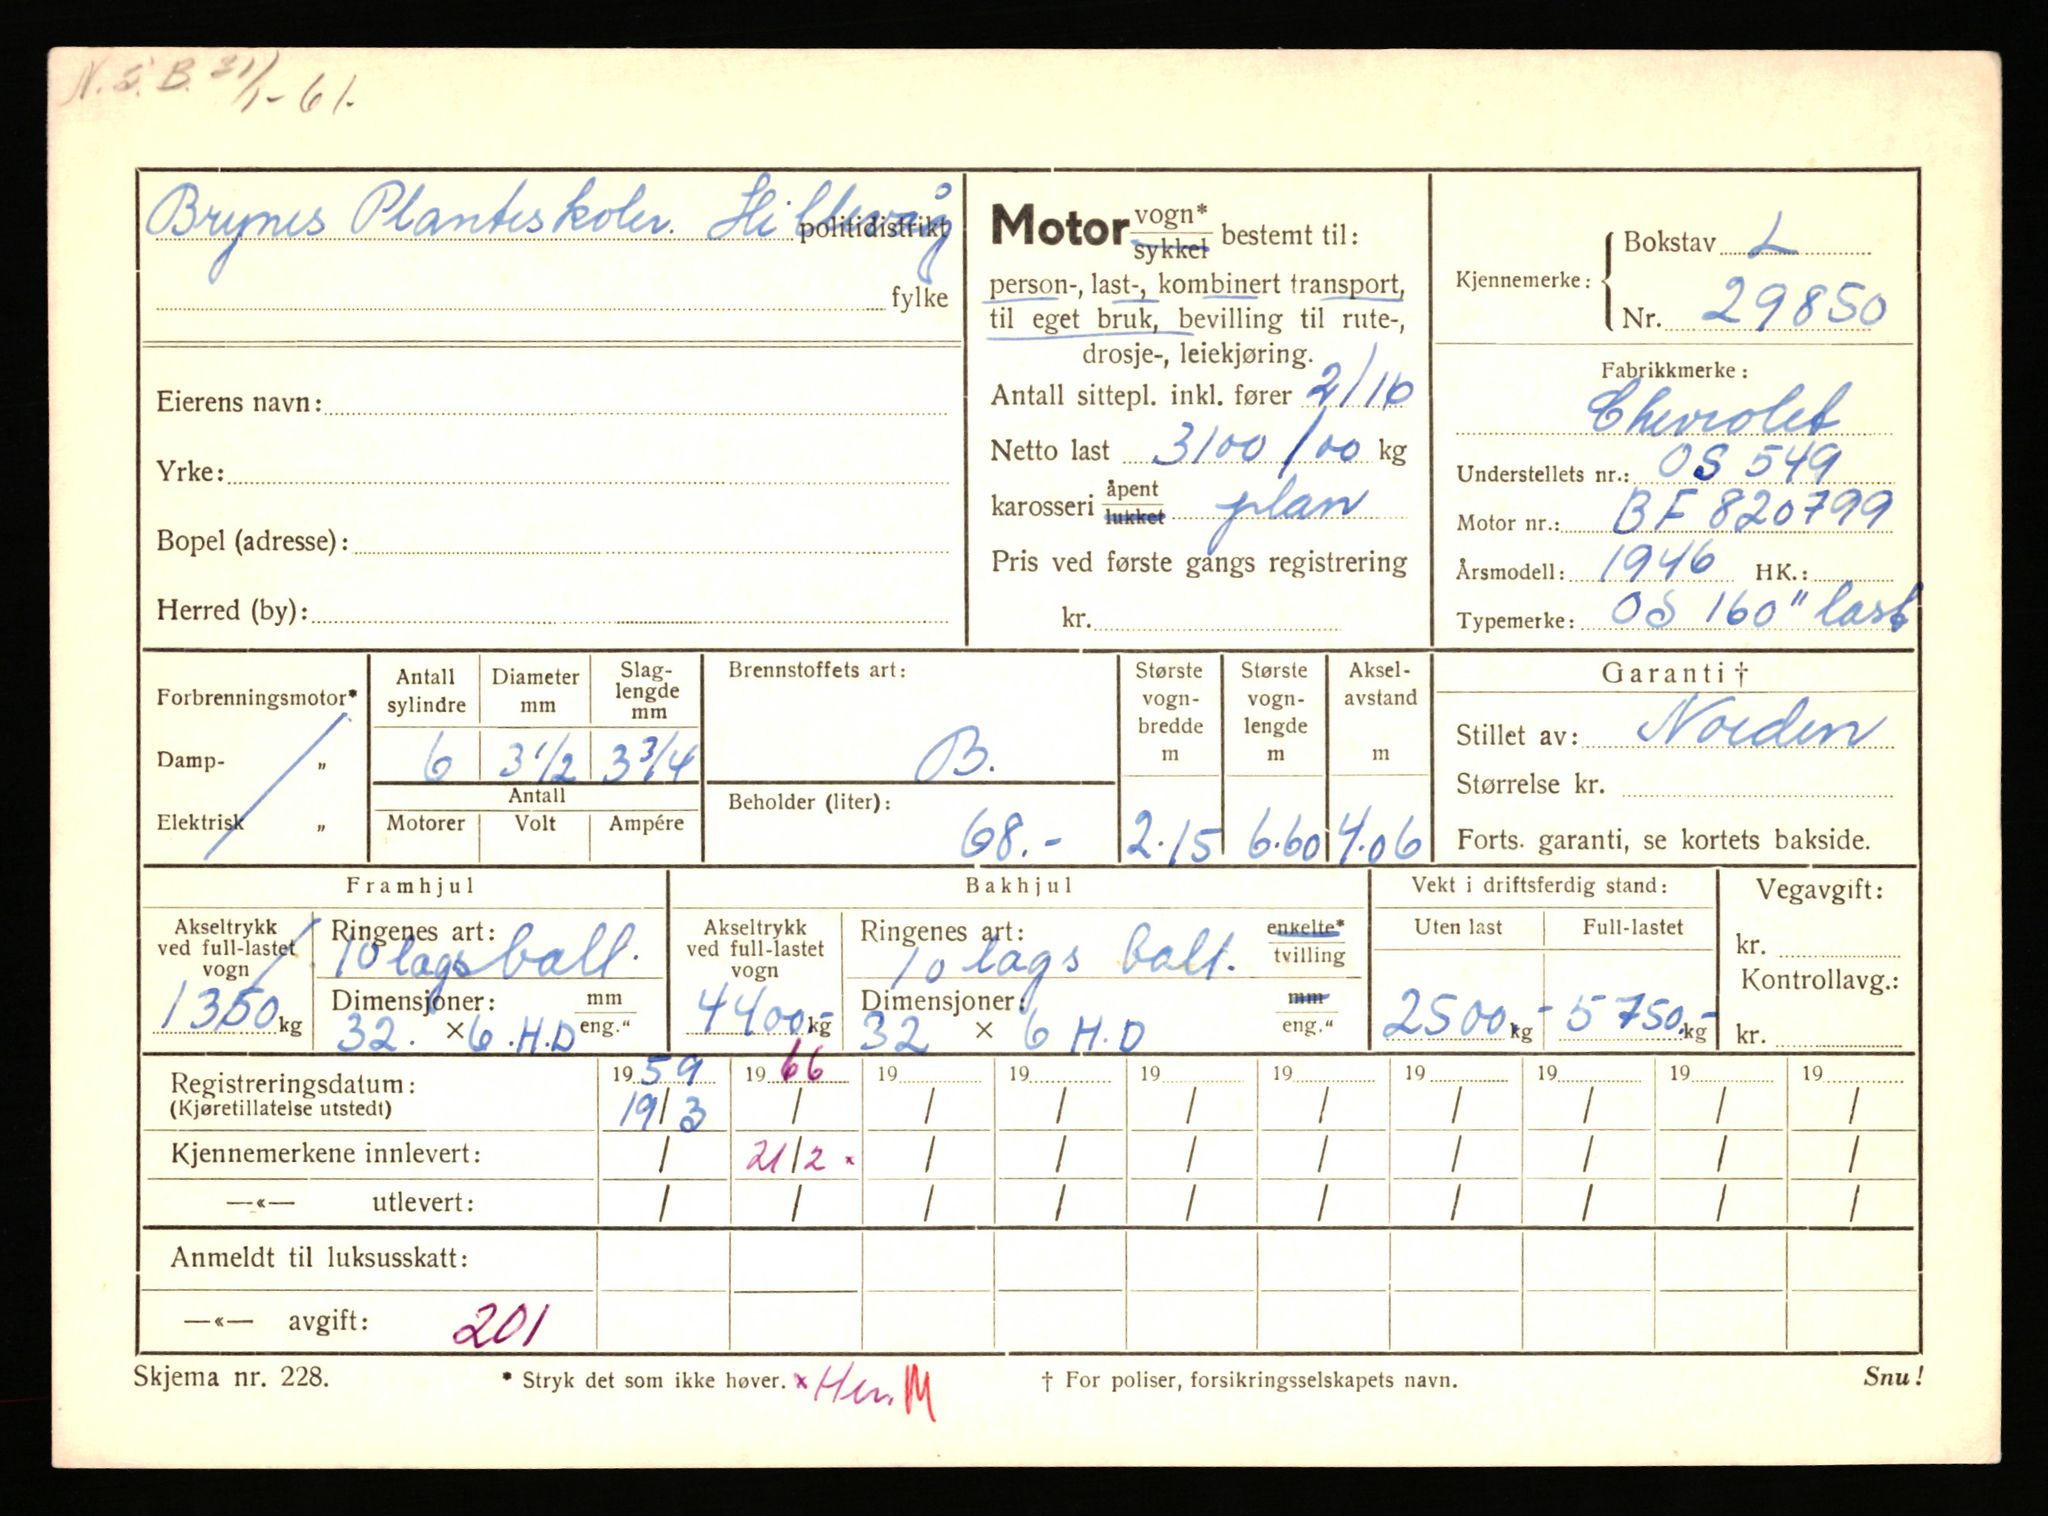 N.S.B. 31/1-61.
Brynes Planteskoler. Hillevåg politidistrikt
fylke
Eierens navn:
Yrke:
Bopel (adresse):
Herred (by):
Motor vogn* sykkel bestemt til:
person-, last-, kombinert transport,
til eget bruk, bevilling til rute-,
drosje-, leiekjøring.
Antall sittepl. inkl. fører 2/10
Netto last 3100/00 kg
karosseri åpent lukket plan
Pris ved første gangs registrering
kr.
Kjennemerke: Bokstav L
Nr. 29850
Fabrikkmerke:
Chevrolet
Understellets nr.: OS 549
Motor nr.: BF 820799
Årsmodell: 1946 HK.:
Typemerke: OS 160" last
Forbrenningsmotor*
Damp- „
Elektrisk „
Antall sylindre 6
Diameter mm 3 1/2
Slag-lengde mm 3 3/4
Antall
Motorer Volt Ampére
Brennstoffets art:
B.
Beholder (liter):
68.-
Største vogn-bredde m 2.15
Største vogn-lengde m 6.60
Aksel-avstand m 4.06
Garanti †
Stillet av: Norden
Størrelse kr.
Forts. garanti, se kortets bakside.
Framhjul
Akseltrykk ved full-lastet vogn 1350 kg
Ringenes art: 10 lags ball.
Dimensjoner: mm eng."
32. × 6.H.D
Bakhjul
Akseltrykk ved full-lastet vogn 4400.- kg
Ringenes art: 10 lags ball. enkelte* tvilling
Dimensjoner: mm eng."
32 × 6 H.D
Vekt i driftsferdig stand:
Uten last Full-lastet
2500.- kg 5750.- kg
Vegavgift:
kr.
Kontrollavg.:
kr.
Registreringsdatum: 1959 1966 19 19 19 19 19 19 19 19
(Kjøretillatelse utstedt) 19/3 / / / / / / / / /
Kjennemerkene innlevert: / 21/2 × / / / / / / / /
—«— utlevert: / / / / / / / / / /
Anmeldt til luksusskatt:
—«— avgift: 201
Skjema nr. 228. * Stryk det som ikke høver. × Hen. M † For poliser, forsikringsselskapets navn. Snu!